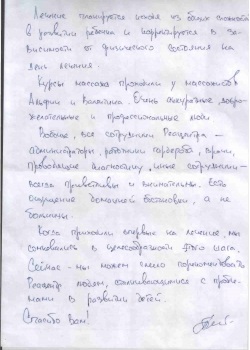 Лечение планируется исходя из общих
в развитии ребенка и корректируется в за-
висимости от физического состояния на
день лечения.
Курсы массажа проходили у массажистов
и Валентина. Очень аккуратные, добро-
желательные и профессиональные люди.
Вообще, все сотрудники Реацентра –
администраторы, работники гардероба, врачи,
проводящие диагностику, иные сотрудники –
всегда приветливы и внимательны. Есть
ощущение домашней обстановки, а не
больницы.
Когда приходили впервые на лечение, мы
сомневались в целесообразности этого шага.
Сейчас – мы можем смело порекомендовать
Реацентр людям, сталкивающимся с пробле-
мами в развитии детей.
Спасибо Вам!